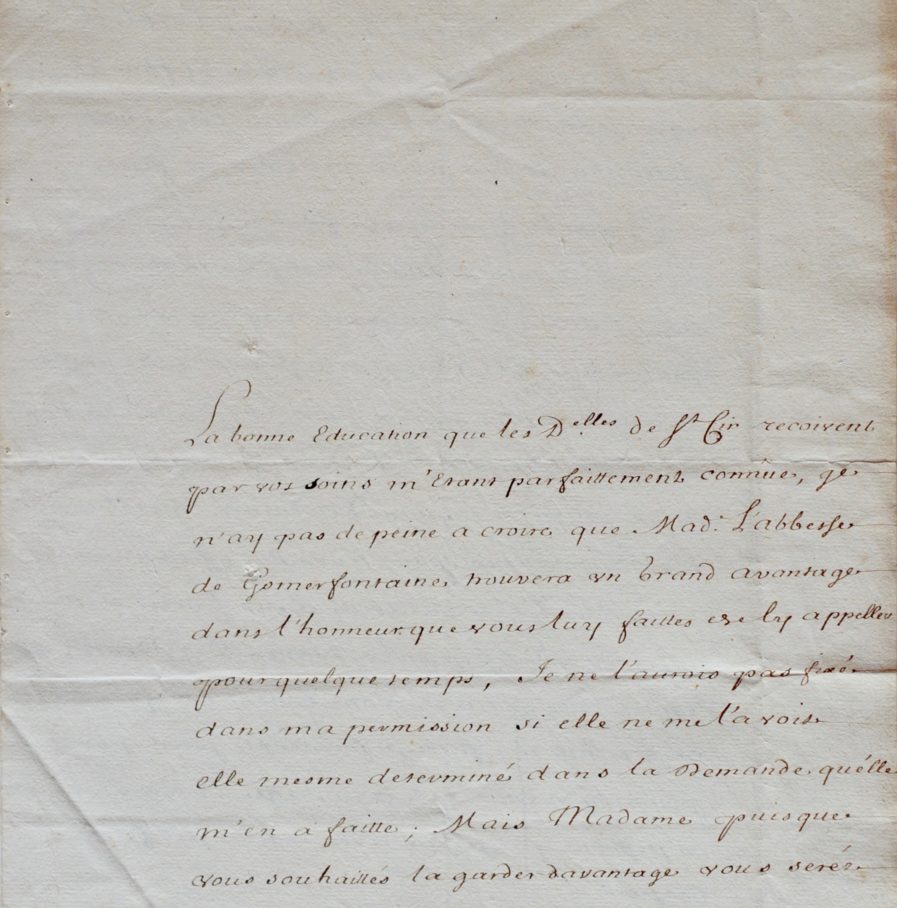 La bonne Education que les D.elles de St Cir recoivent
par vos soins m'Etant parfaittement connüe, je
n'ay pas de peine a croire que Mad.e L'abbesse
de Gomerfontaine trouvera un Grand avantage
dans l'honneur que vous luy faittes de ly appeller
pour quelque temps, Je ne l'aurois pas fixé
dans ma permission si elle ne me l'avoit
elle mesme determiné dans la Demande qu'elle
m'en a faitte; Mais Madame puisque
vous souhaittés la garder davantage vous serés